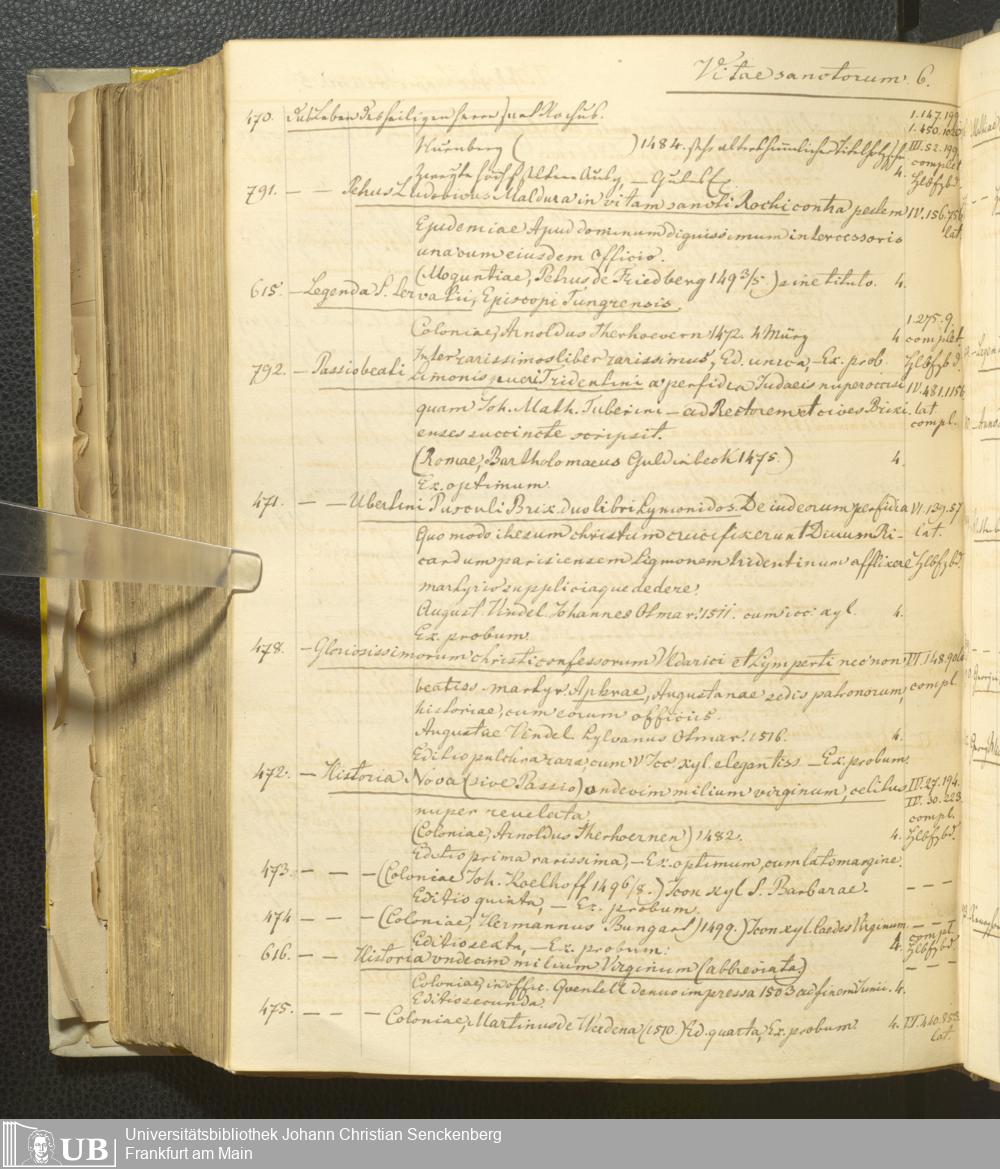 Vitae sanctorum 6.
470. das Leben des heiligen herrn sant Rochus. 1.147.199
1.450.1020
Nürnberg ( ) 1484. sehr alterthümlicher III.52.199
complet
4. Hlbfzbd.
791. — — Petrus Ludovicus Maldura in vitam sancti Rochi contra pestem IV.156.756
lat.
Epidemiae Apud dominum dignissimum intercessoris
una cum eiusdem officio.
(Moguntiae, Petrus de Friedberg 149 3/5) sine titulo. 4.
615. — Legenda S. Servatii, Episcopi Tungrensis.
1.275.9
Coloniae, Arnoldus Therhoevern 1472. 4 4 complet.
Inter rarissimos liber rarissimus, Ed. unica, — Ex. prob. Hlbfzbd.
792. — Passio beati Simonis pueri Tridentini a perfidia Judaeis nuper occisi IV.481.1156
quam Joh. Math. Tuberini — ad Rectorem et cives Brixi- lat
compl.
enses succincte scripsit.
(Romae, Bartholomaeus Guldinbeck 1475.) 4.
Ex. optimum
471. — — Ubertini Pusculi Brix. duo libri Symonidos. De iudeorum perfidia VI.139.57
Quo modo ihesum christum crucifixerunt Diuum Ri- lat.
cardum parisiensem Symonem tridentinum afflixere Hlbfzbd.
martyrio suppliciaque dedere.
August. Vindel. Johannes Otmar. 1511. cum icc. xyl. 4.
Ex. probum
478. — Gloriosissimorum christi confessorum Vldarici et Symperti nec non
beatiss. martyr. Aphrae, Augustanae sedis patronorum, compl.
historiae, cum eorum officiis.
Augustae Vindel. Sylvanus Otmar. 1516. 4.
Editio pulchra rara, cum V Icc. xyl. elegantiss. — Ex. probum.
472. — Historia Nova (sive Passio) undecim milium virginum, celitus III.27.194.
IV.30.223
nuper reuelata compl.
(Coloniae, Arnoldus Therhoernen) 1482. 4. Hlbfzbd.
Editio prima rarissima, — Ex. optimum, cum lato margine.
473. — — — (Coloniae Joh. Koelhoff 1496/8.) Icon xyl S. Barbarae. — — —
Editio quinta, — Ex. probum.
474 — — — (Coloniae, Hermannus Bungart) 1499.) Icon xyl. Caedes Virginum. — —
Editio sexta, — Ex. probum. 4. compt. Hlbfzbd.
616. — — Historia vndecim milium Virginum (abbreviata) — — —
Coloniae, in offic. Quentell denuo impressa 1503 ad finem Junii. 4.
Editio secunda.
475. — — — Coloniae, Martinus de Werdena (1510.) Ed. quarta, Ex. probum. 4. IV.410.858
lat.
UB
Universitätsbibliothek Johann Christian Senckenberg
Frankfurt am Main